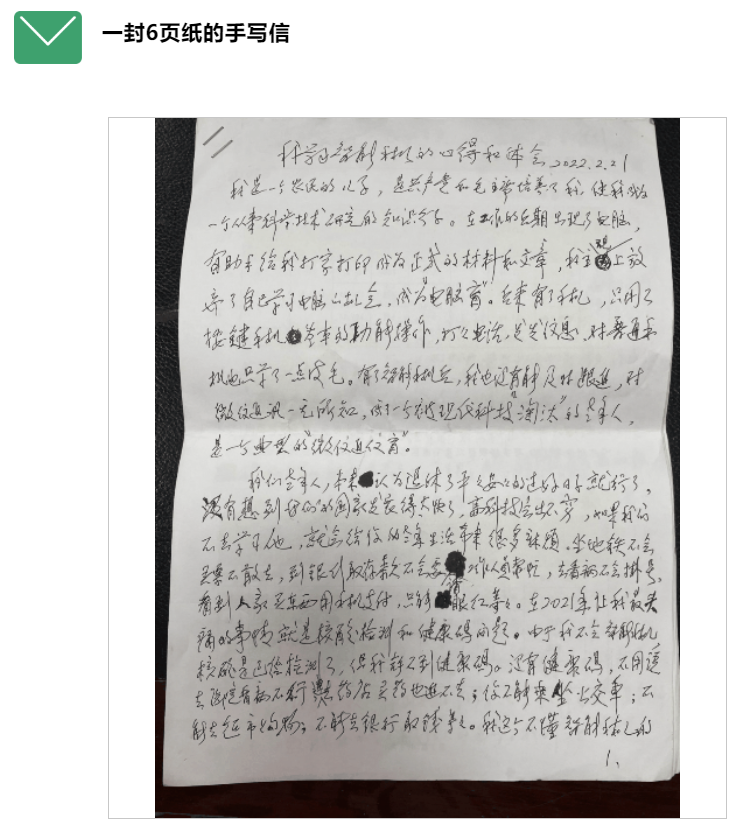 一封6页纸的手写信
我学习智能手机的心得和体会 2022.2.21
我是一个农民的儿子，是共产党和毛主席培养了我，使我成为
一个从事科学技术研究的知识分子。在工作的后期出现了电脑，
有助手给我打字打印成为正式的材料和文章，我主观上放
弃了自己学习电脑的机会，成为"电脑盲"。后来有了手机，只用了
按键手机老年的功能操作，打打电话，发发信息，对普通手
机也只学了一点皮毛。有了智能手机后，我也没有能及时跟进，对
微信通讯一无所知，成了一个被现代科技"淘汰"的老年人，
是一个典型的"微信通信盲"。
我们老年人，本来认为退休了平平安安的过好日子就行了，
没有想到我们的国家发展得太快了，高科技层出不穷，如果我们
不去学习他，就会给你的老年生活带来很多麻烦，坐地铁不会
买票不敢走，到银行取存款不会要请工作人员帮忙，去看病不会挂号，
看到人家买东西用手机支付，只能眼红等等。在2021年让我最头
痛的事情就是核酸检测和健康码问题。由于我不会智能手机
核酸是已经检测了，但我得不到健康码。没有健康码，不用说
去医院看病不行，就药店买药也进不去；你不能乘坐公交车；不
能去超市购物；不能去银行取钱等等。我这个不懂智能手机的
1.